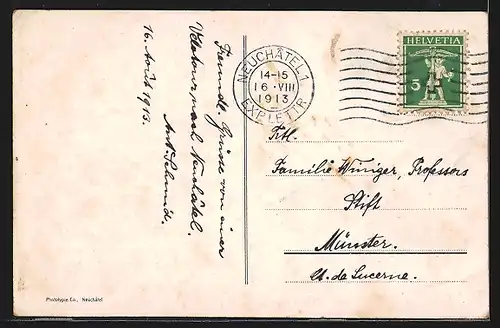 Freundl. Grüsse von einer
Velotour nach Neuchâtel.
Ant. Schmid.
16. Août 1913.
HELVETIA
5
NEUCHÂTEL 1
14-15
16 · VIII
1913
EXP. LETTR.
Titl.
Familie Winiger, Professors
Stift
Münster.
Ct. de Lucerne.
Phototypie Co., Neuchâtel